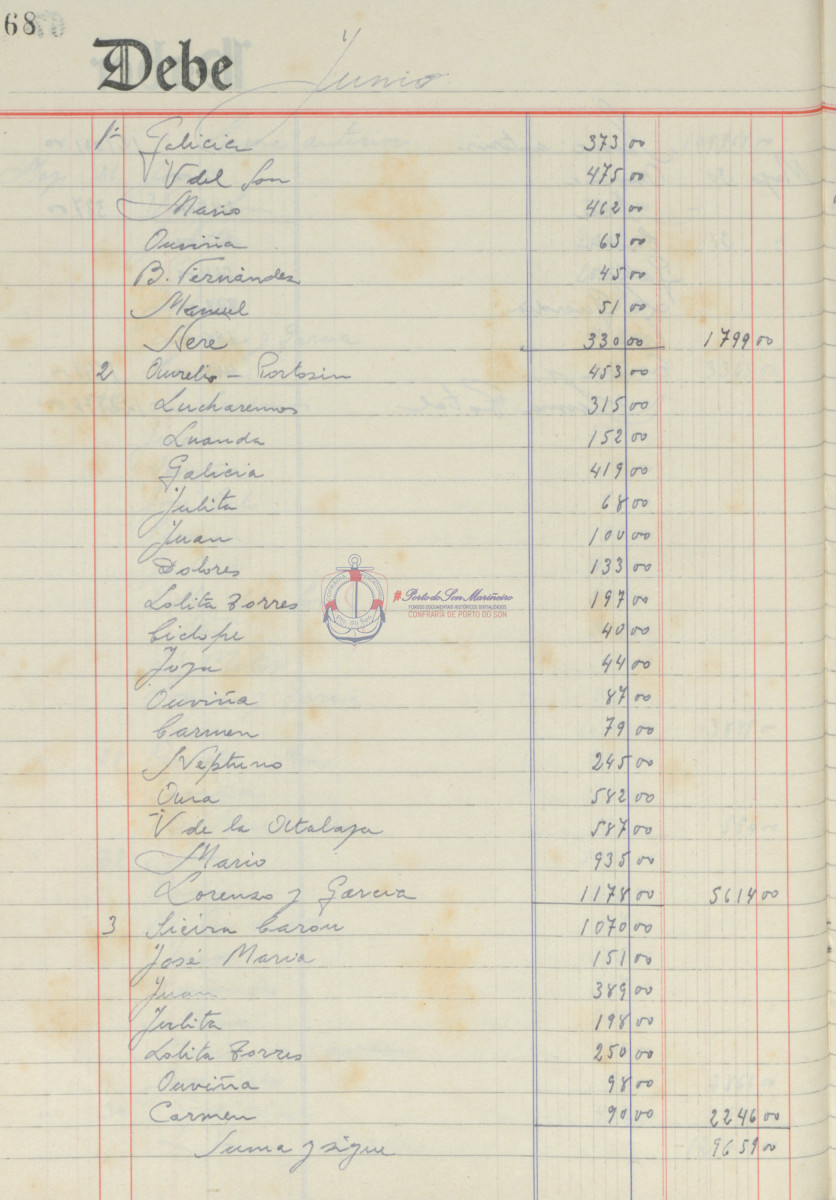 68
Debe Junio
1º Galicia 373 00
V del Son 475 00
Mario 462 00
Ouviña 63 00
B. Fernández 45 00
Manuel 51 00
Nere 330 00 1799 00
2 Aurelio - Portosin 453 00
Lucharemos 315 00
Luanda 152 00
Galicia 419 00
Julita 68 00
Juan 100 00
Dolores 133 00
Lolita Torres 197 00
Ciclope 40 00
44 00
Ouviña 87 00
Carmen 79 00
Neptuno 245 00
582 00
V de la Atalaya 587 00
Mario 935 00
Lorenzo y García 1178 00 5614 00
3 Sieira Carou 1070 00
José María 151 00
Juan 389 00
Julita 198 00
Lolita Torres 250 00
Ouviña 98 00
Carmen 90 00 2246 00
Suma y sigue 9659 00
#PortodoSonMariñeiro
FONDOS DOCUMENTAIS HISTÓRICOS DIXITALIZADOS
CONFRARÍA DE PORTO DO SON